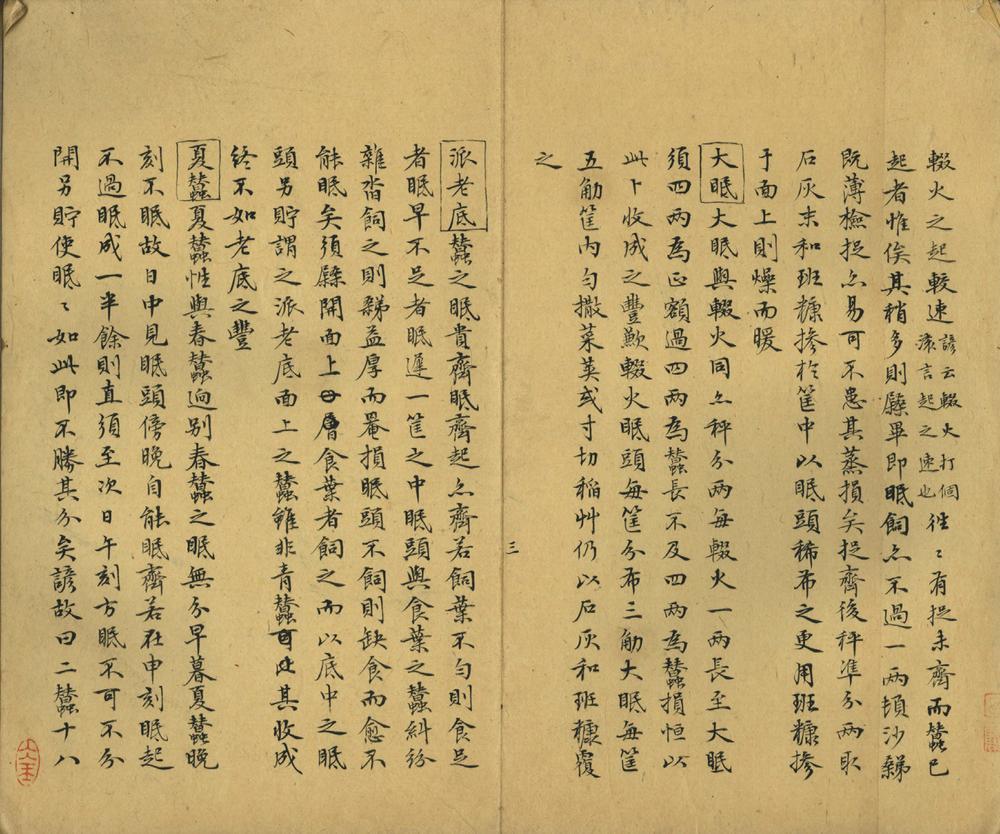 輟火之起較速諺云輟火打個滾言起之速也徃〻有捉未齊而蠶已
起者惟俟其稍多則㯡畢即眠飼亦不過一兩頓沙䉺
既薄檢捉亦易可不患其蒸損矣捉齊後秤準分兩取
石灰末和班糠摻於筐中以眠頭稀布之更用班糠摻
于面上則燥而暖
大眠大眠與輟火同亦秤分兩每輟火一兩長至大眠
須四兩為正額過四兩為蠶長不及四兩為蠶損恒以
此卜收成之豐歉輟火眠頭每筐分布三觔大眠每筐
五觔筐内勻撒菜萁或寸切稲艸仍以石灰和班糠覆
之
三
派老底蠶之眠貴齊眠齊起亦齊若飼葉不勻則食足
者眠早不足者眠遲一筐之中眠頭與食葉之蠶糾紛
雜沓飼之則䉺益厚而罨損眠頭不飼則缺食而愈不
能眠矣須㯡開面上層食葉者飼之而以底中之眠
頭另貯謂之派老底面上之蠶雖非青蠶可比其收成
終不如老底之豐
夏蠶夏蠶性與春蠶迥别春蠶之眠無分早暮夏蠶晚
刻不眠故日中見眠頭傍晚自能眠齊若在申刻眠起
不過眠成一半餘則直須至次日午刻方眠不可不分
開另貯使眠〻如此即不勝其分矣諺故曰二蠶十八